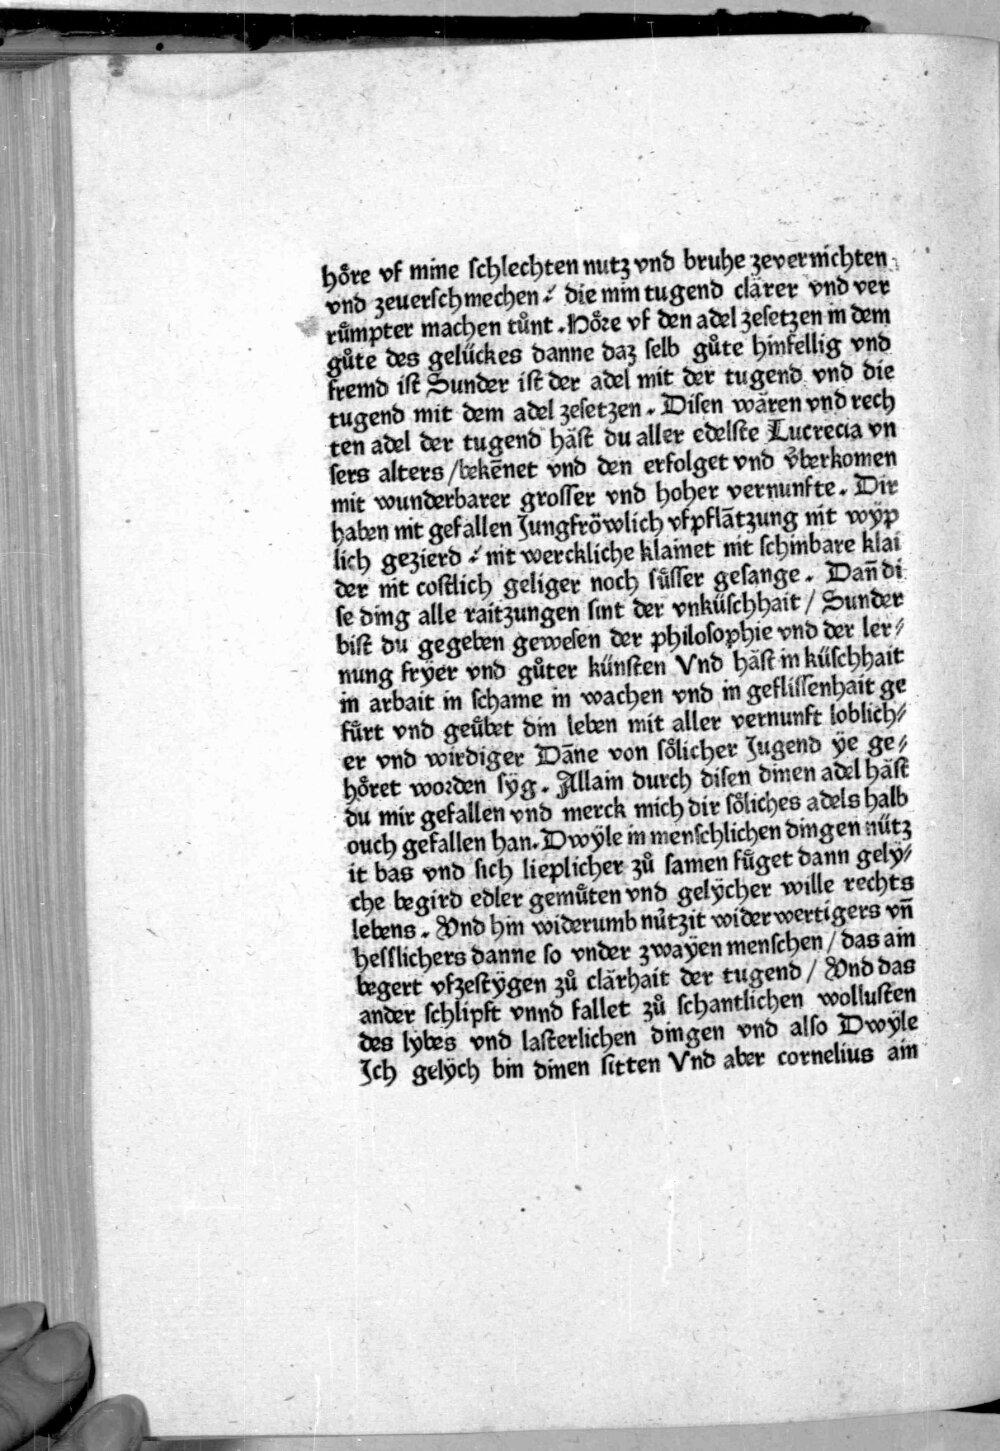 hoͤre vf mine ſchlechten nutz vnd bruhe zevernichten
vnd zeuerſchmechen ⸗ die min tugend clârer vnd ver
ruͤmpter machen tuͦnt . Hoͤre vf den adel zeſetzen in dem
guͦte des gelückes danne daz ſelb guͦte hinfellig vnd
fremd iſt Sunder iſt der adel mit der tugend vnd die
tugend mit dem adel zeſetzen . Diſen wâren vnd rech
ten adel der tugend hâſt du aller edelſte Lucrecia vn
ſers alters / bekēnet vnd den erfolget vnd v̈berkomen
mit wunderbarer groſſer vnd hoher vernunfte . Dir
haben nit gefallen Jungfröwlich vfpflātzung nit wÿp
lich gezierd ⸗ nit werckliche klainet nit ſchinbare klai
der nit coſtlich geliger noch ſuͤſſer geſange . Dan̄ di
ſe ding alle raitzungen ſint der vnküſchhait / Sunder
biſt du gegeben geweſen der philoſophie vnd der ler⸗
nung fryer vnd guͦter künſten Vnd hâſt in küſchhait
in arbait in ſchame in wachen vnd in gefliſſenhait ge
fuͤrt vnd geuͤbet din leben mit aller vernunft loblich⸗
er vnd wirdiger Dāne von ſoͤlicher Jugend ÿe ge⸗
hoͤret worden ſÿg . Allain durch diſen dinen adel hâſt
du mir gefallen vnd merck mich dir ſoͤliches adels halb
ouch gefallen han . Dwÿle in menſchlichen dingen nütz
it bas vnd ſich lieplicher zuͦ ſamen fuͤget dann gelÿ⸗
che begird edler gemuͤten vnd gelÿcher wille rechts
lebens . Vnd hin widerumb nützit widerwertigers vn̄
heſſlichers danne ſo vnder zwaÿen menſchen / das ain
begert vfzeſtÿgen zuͦ clârhait der tugend / Vnd das
ander ſchlipft vnnd fallet zuͦ ſchantlichen wolluſten
des lybes vnd laſterlichen dingen vnd alſo Dwÿle
Ich gelÿch bin dinen ſitten Vnd aber cornelius ain